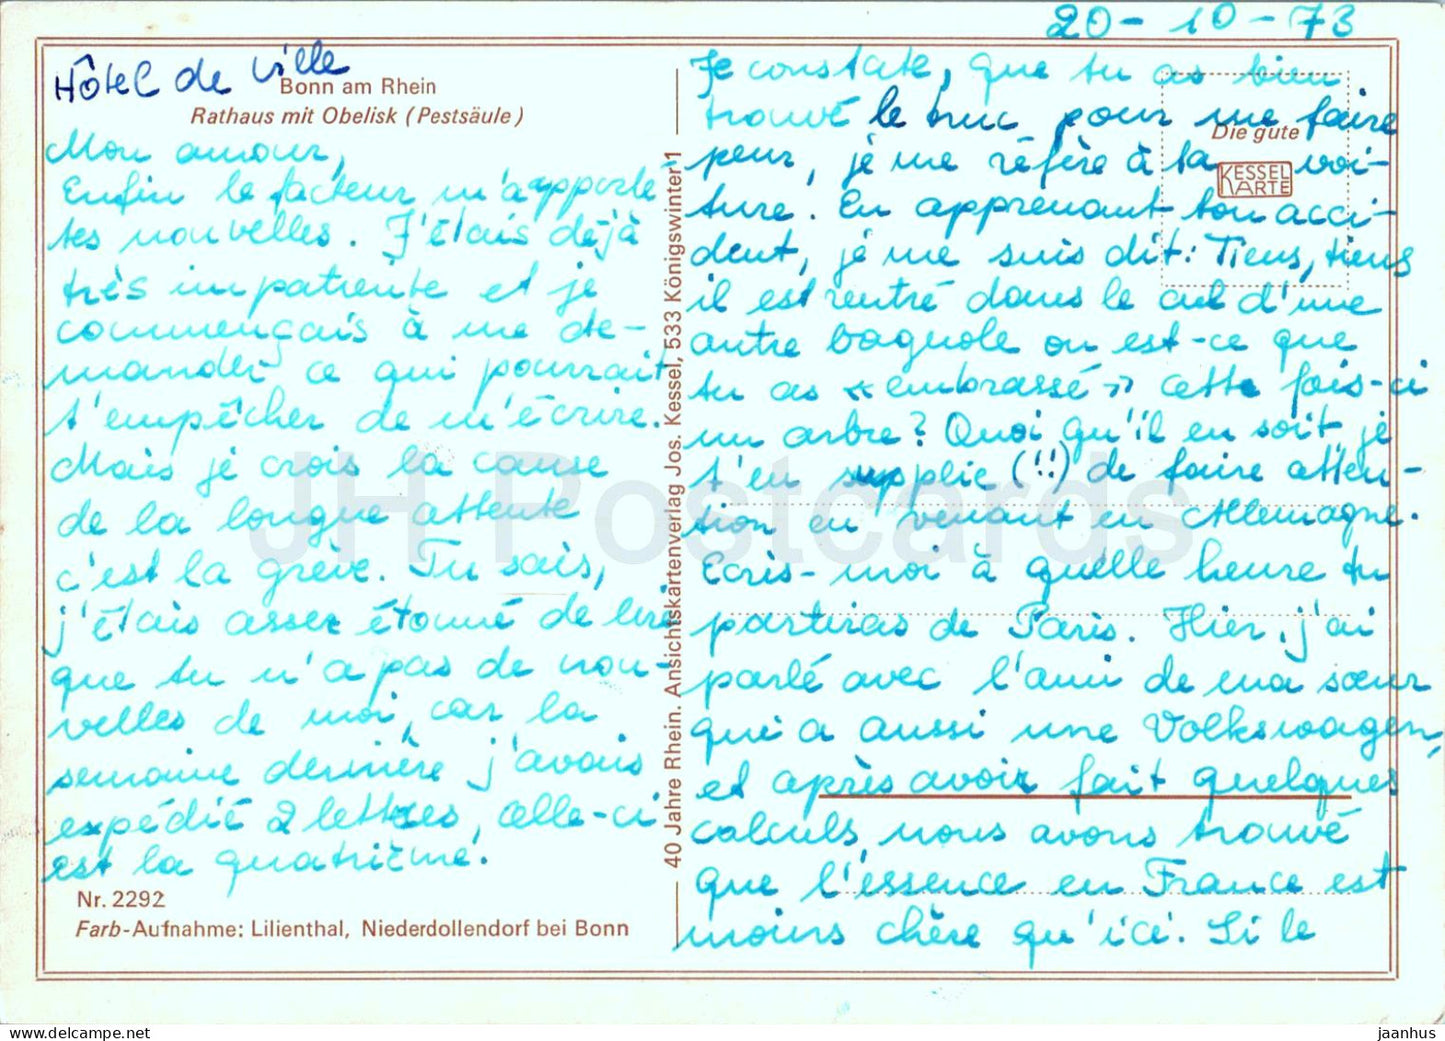 20-10-73
Hôtel de ville
Bonn am Rhein
Rathaus mit Obelisk (Pestsäule)
Mon amour,
Enfin le facteur m'a apporté
tes nouvelles. J'étais déjà
très impatiente et je
commençais à me de-
mander ce qui pourrait
t'empêcher de m'écrire.
Mais je crois la cause
de la longue attente
c'est la grève. Tu sais,
j'étais assez étonné de lire
que tu n'a pas de nou-
velles de moi, car la
semaine dernière j'avais
expédié 2 lettres, celle-ci
est la quatrième.
Nr. 2292
Farb-Aufnahme: Lilienthal, Niederdollendorf bei Bonn
40 Jahre Rhein. Ansichtskartenverlag Jos. Kessel, 533 Königswinter 1
Die gute
KESSEL
KARTE
Je constate, que tu as bien
trouvé le truc pour me faire
peur, je me réfère à ta voi-
ture. En apprenant ton acci-
dent, je me suis dit: Tiens, tiens
il est rentré dans le cul d'une
autre bagnole ou est-ce que
tu as «embrassé» cette fois-ci
un arbre? Quoi qu'il en soit, je
t'en supplie (!!) de faire atten-
tion en venant en Allemagne.
Ecris-moi à quelle heure tu
partiras de Paris. Hier, j'ai
parlé avec l'ami de ma sœur
qui a aussi une Volkswagen,
et après avoir fait quelques
calculs, nous avons trouvé
que l'essence en France est
moins chère qu'ici. Si le
JH Postcards
www.delcampe.net
jaanhus